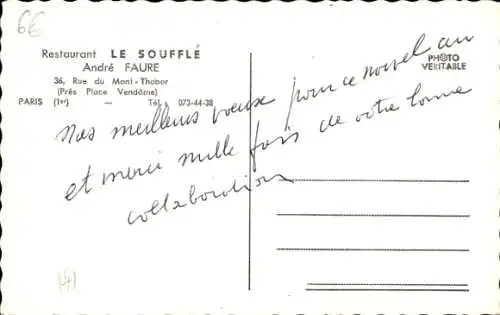 6€
Restaurant LE SOUFFLÉ
André FAURE
36, Rue du Mont-Thabor
(Près Place Vendôme)
PARIS (1er) — Tél. 073-44-38
PHOTO
VERITABLE
Nos meilleurs voeux pour ce nouvel an
et merci mille fois de votre bonne
collaboration